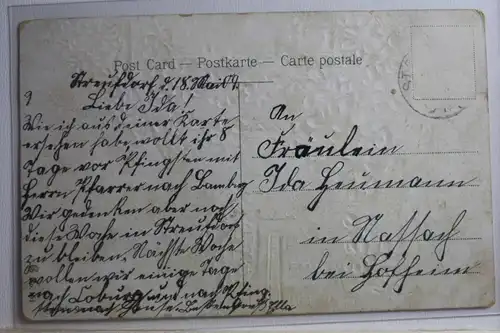 Post Card – Postkarte – Carte postale
Streufdorf d. 18. Mai
Liebe Ida!
Wie ich aus deiner Karte
ersehen habe, wollt ihr 8
Tage vor Pfingsten mit
Herrn Pfarrer nach Bamberg
Wir gedenken aber noch
diese Woche in Streufdorf
zu bleiben. Nächste Woche
wollen wir einige Tage
nach Coburg und nach Pfing-
sten nach Hause. Besten Gruß Ella
An
Fräulein
Ida Heumann
in Nassach
bei Hofheim